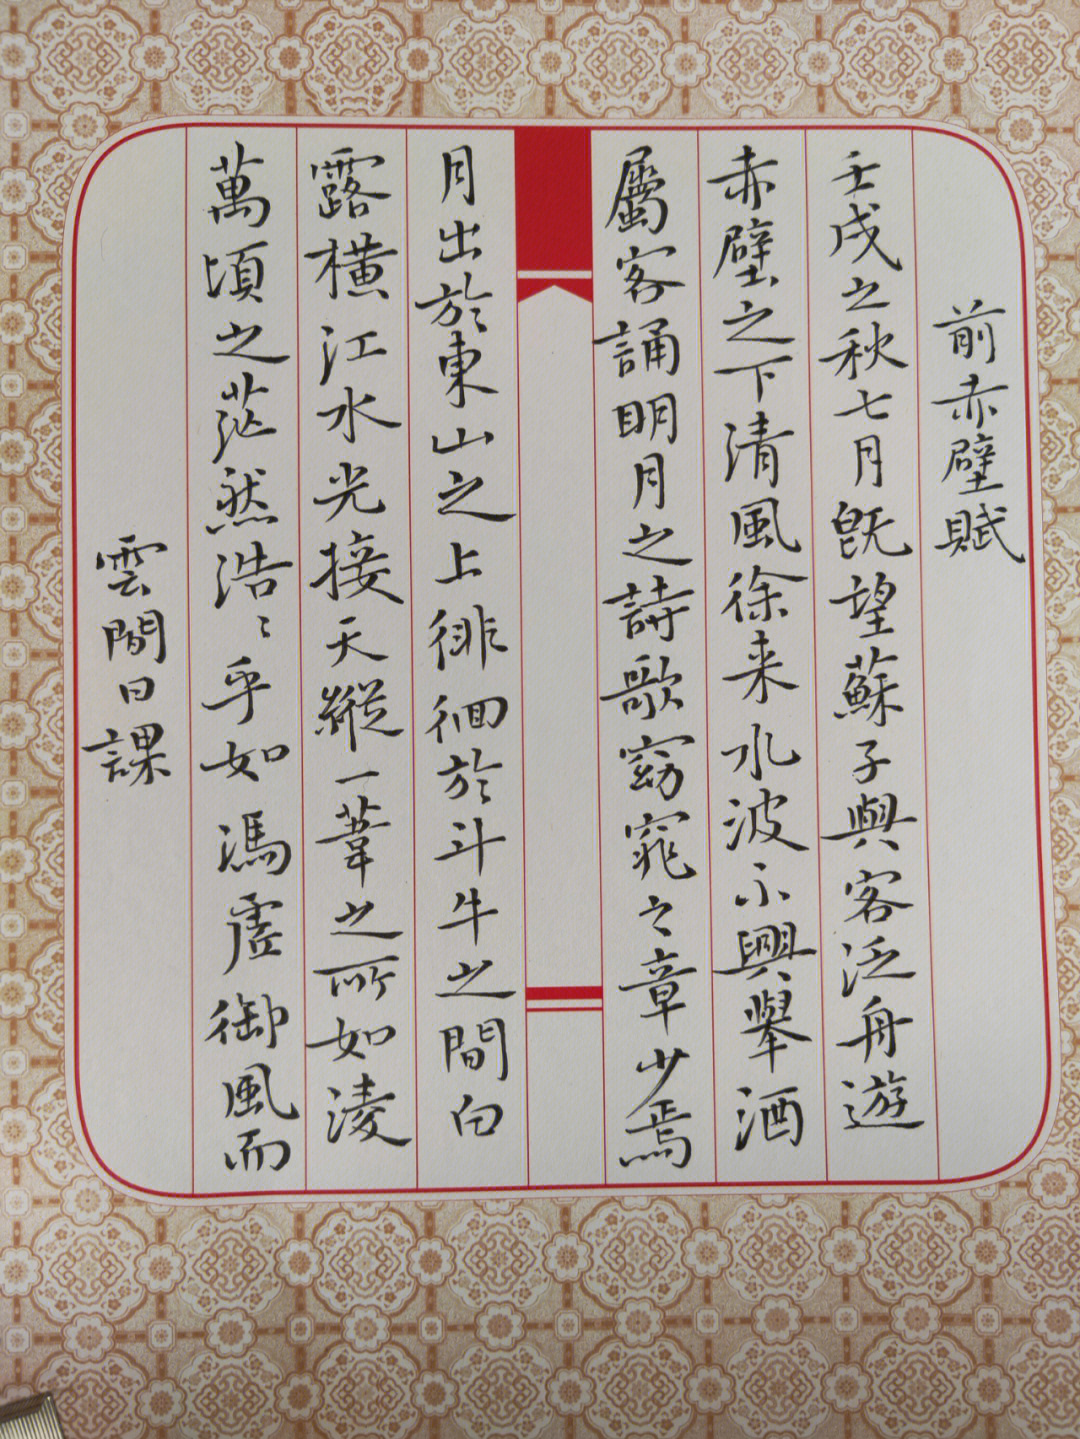 前赤壁賦
壬戌之秋七月既望蘇子與客泛舟遊
赤壁之下清風徐来水波不興舉酒
屬客誦明月之詩歌窈窕之章少焉
月出於東山之上徘徊於斗牛之間白
露橫江水光接天縱一葦之所如淩
萬頃之茫然浩〻乎如馮虛御風而
雲間日課